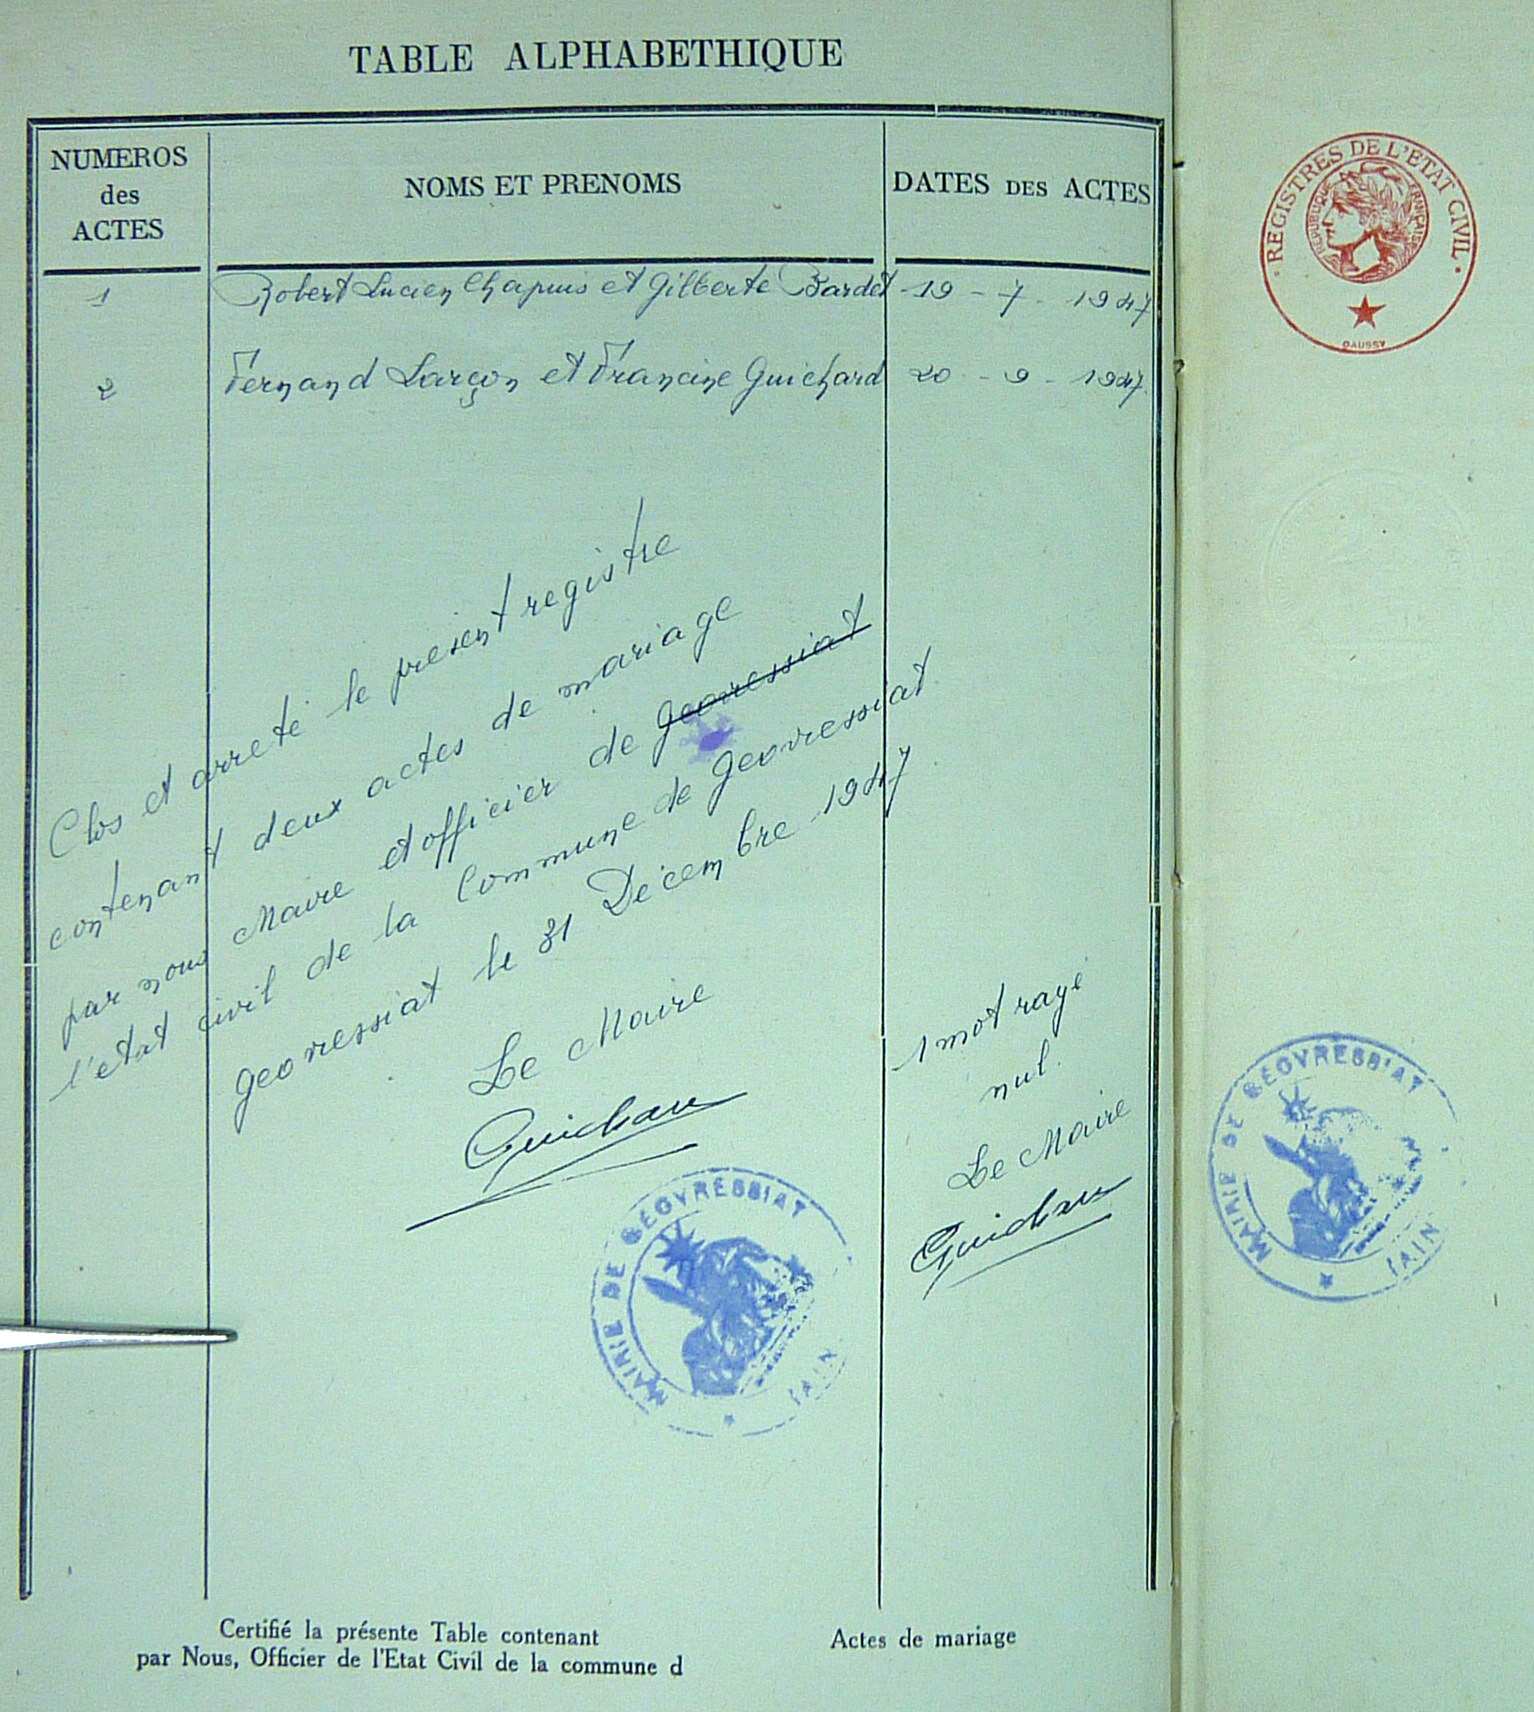 TABLE ALPHABETHIQUE
NUMEROS
des
ACTES
NOMS ET PRENOMS
DATES DES ACTES
1 Robert Lucien Chapuis et Gilberte Bardet 19 - 7 - 1947
2 Fernand Larçon et Francine Guichard 20 - 9 - 1947
Clos et arreté le présent registre
contenant deux actes de mariage
par nous Maire et officier de Geovressiat
l'etat civil de la Commune de Geovressiat
Geovressiat le 31 Décembre 1947
Le Maire
1 mot rayé
nul.
Le Maire
MAIRIE DE GÉOVRESSIAT
(AIN)
Certifié la présente Table contenant Actes de mariage
par Nous, Officier de l'Etat Civil de la commune d
REGISTRES DE L'ETAT CIVIL
REPUBLIQUE FRANÇAISE
DAUSSY
MAIRIE DE GÉOVRESSIAT
(AIN)